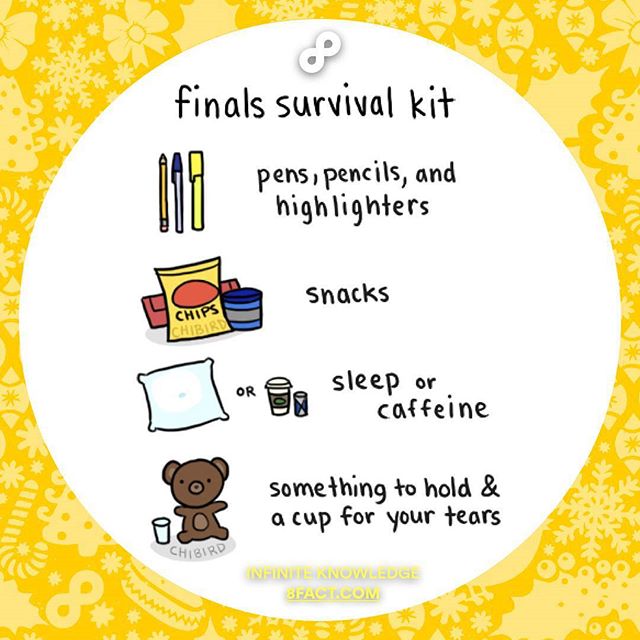 finals survival kit
pens, pencils, and
highlighters
CHIPS
CHIBIRD
snacks
OR
sleep or
caffeine
something to hold &
a cup for your tears
CHIBIRD
INFINITE KNOWLEDGE
8FACT.COM